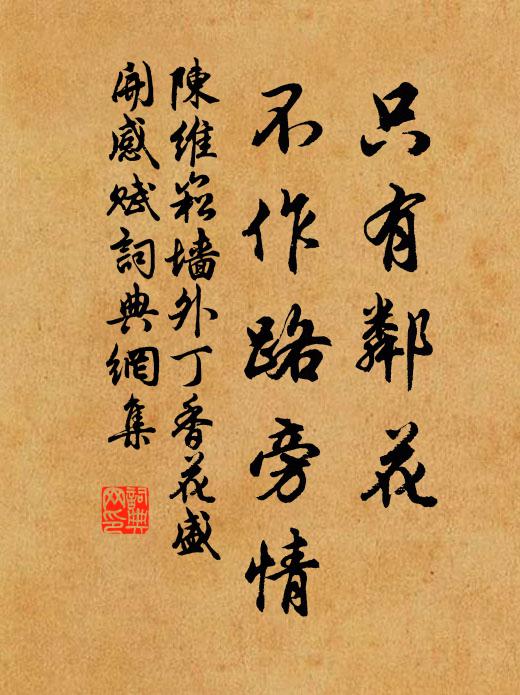 只有鄰花
不作路旁情
陳維崧墻外丁香花盛
開感賦詞典網集
詞典
网印